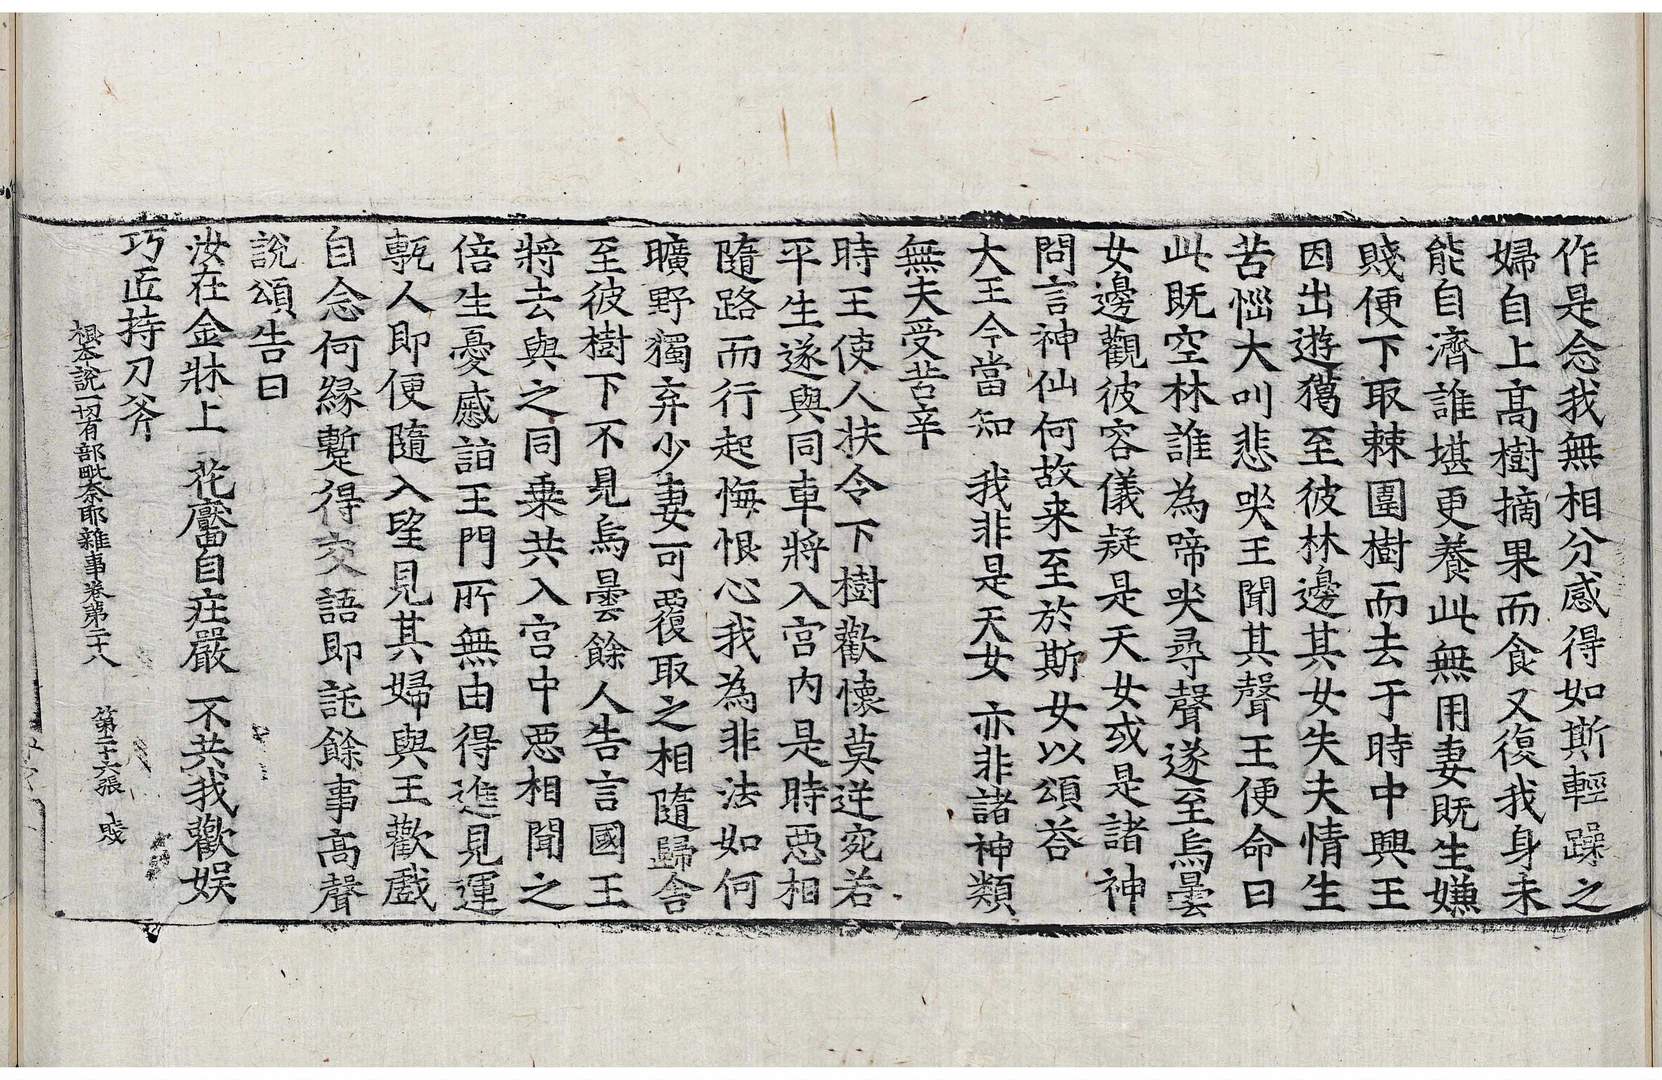 作是念我無相分感得如斯輕躁之
婦自上高樹摘果而食又復我身未
能自濟誰堪更養此無用妻既生嫌
賤便下取棘圍樹而去于時中興王
因出遊獵至彼林邊其女失夫情生
苦惱大叫悲哭王聞其聲王便命曰
此既空林誰為啼哭尋聲遂至烏曇
女邊觀彼容儀疑是天女或是諸神
問言神仙何故来至於斯女以頌荅
大王今當知　我非是天女　亦非諸神類
無夫受苦辛
時王使人扶令下樹歡懷莫逆宛若
平生遂與同車將入宮內是時惡相
隨路而行起悔恨心我為非法如何
曠野獨弃少妻可覆取之相隨歸舍
至彼樹下不見烏曇餘人告言國王
將去與之同乗共入宮中惡相聞之
倍生憂慼詣王門所無由得進見運
甎人即便隨入望見其婦與王歡戲
自念何緣蹔得交語即託餘事高聲
說頌告曰
汝在金牀上　花鬘自莊嚴　不共我歡娱
巧匠持刀斧
根本說一切有部毗奈耶雜事卷第二十八　第二十六張